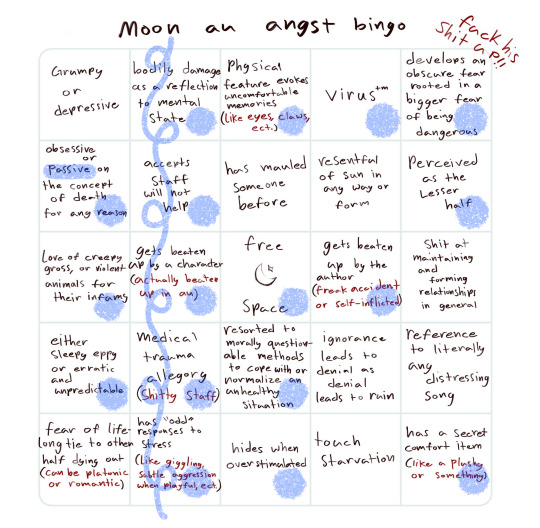 Moon au angst bingo
fuck his
shit up!!!
Grumpy
or
depressive
bodily damage
as a reflection
to mental
State
Physical
feature evokes
uncomfortable
memories
(like eyes, claws,
ect.)
Virus™
develops an
obscure fear
rooted in a
bigger fear
of being
dangerous
obsessive
or
Passive on
the concept
of death
for any reason
accepts
Staff
will not
help
has mauled
someone
before
resentful
of Sun in
any way or
form
Perceived
as the
Lesser
half
Love of creepy
gross, or violent
animals for
their infamy
gets beaten
up by a character
(actually beaten
up in au)
free
Space
gets beaten
up by the
author
(freak accident
or self-inflicted)
Shit at
maintaining
and
forming
relationships
in general
either
Sleepy eppy
or erratic
and
unpredictable
Medical
trauma
allegory
(Shitty Staff)
resorted to
morally question-
able methods
to cope with or
normalize an
unhealthy
Situation
ignorance
leads to
denial as
denial
leads to ruin
reference
to literally
any
distressing
Song
fear of life-
long tie to other
half dying out
(can be platonic
or romantic)
has "odd"
responses to
Stress
(Like giggling,
subtle aggression
when playful, ect.)
hides when
overstimulated
touch
Starvation
has a secret
comfort item
(like a plushy
or something)